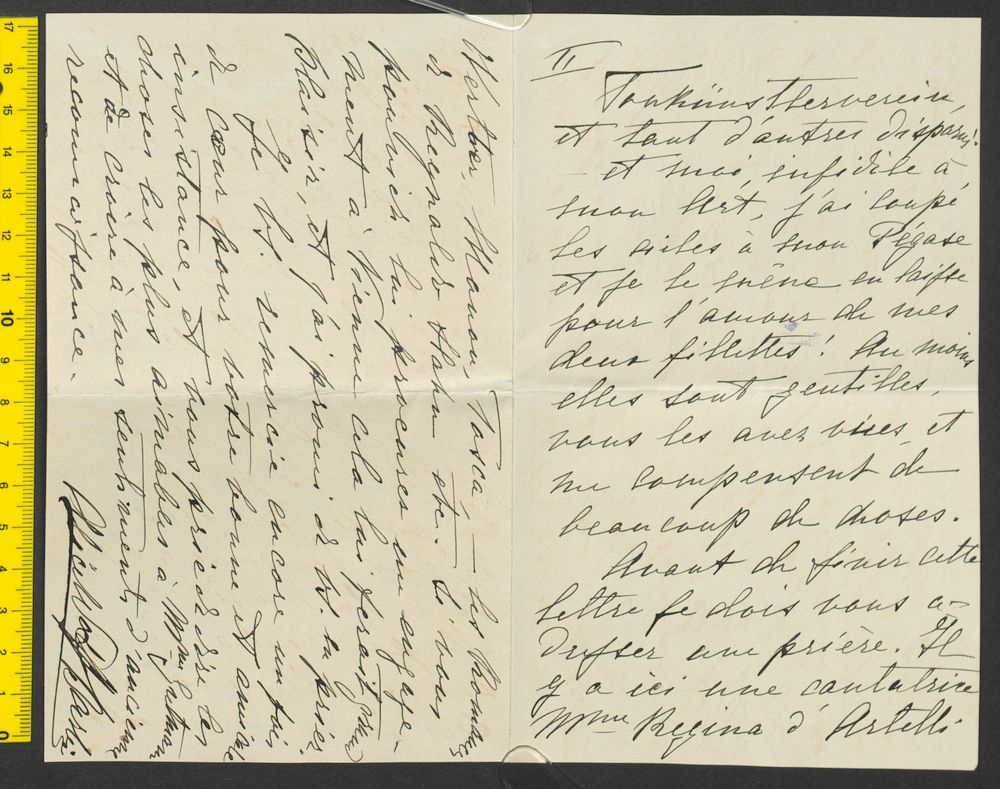 II
Tonkünstlerverein,
et tant d'autres disparus.
— et moi, infidèle à
mon Art, j'ai coupé
les ailes à mon Pégase
et je le mène en laisse
pour l'amour de mes
deux fillettes! Au moins
elles sont gentilles,
vous les avez vues, et
me compensent de
beaucoup de choses.
Avant de finir cette
lettre je dois vous a-
dresser une prière. Il
y a ici une cantatrice
Mme Regina d'Artelli
Werter Manon Tosca — les
de Reynaldo Hahn etc. Si vous
pouviez lui procurer un engage-
ment à Vienne cela lui ferait
plaisir, et j'ai promis de V. en prier.
Je V. remercie encore une fois
de Cœur pour votre bonne et amicale
insistance, et vous prie de dire les
choses les plus aimables à Mme
et de croire à mes sentiments d'ancienne
reconnaissance.
17 16 15 14 13 12 11 10 9 8 7 6 5 4 3 2 1 0